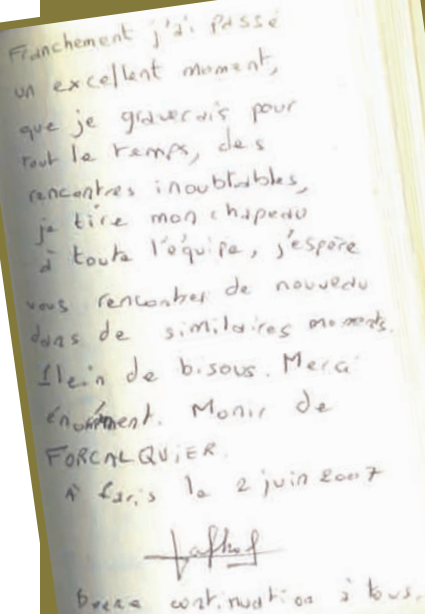 Franchement j'ai passé
un excellent moment,
que je graverais pour
tout le temps, des
rencontres inoubliables,
je tire mon chapeau
à toute l'équipe, j'espère
vous rencontrer de nouveau
dans de similaires moments.
Plein de bisous. Merci
énormément. Monir de
FORCALQUIER.
à Paris le 2 juin 2007
Bonne continuation à tous.